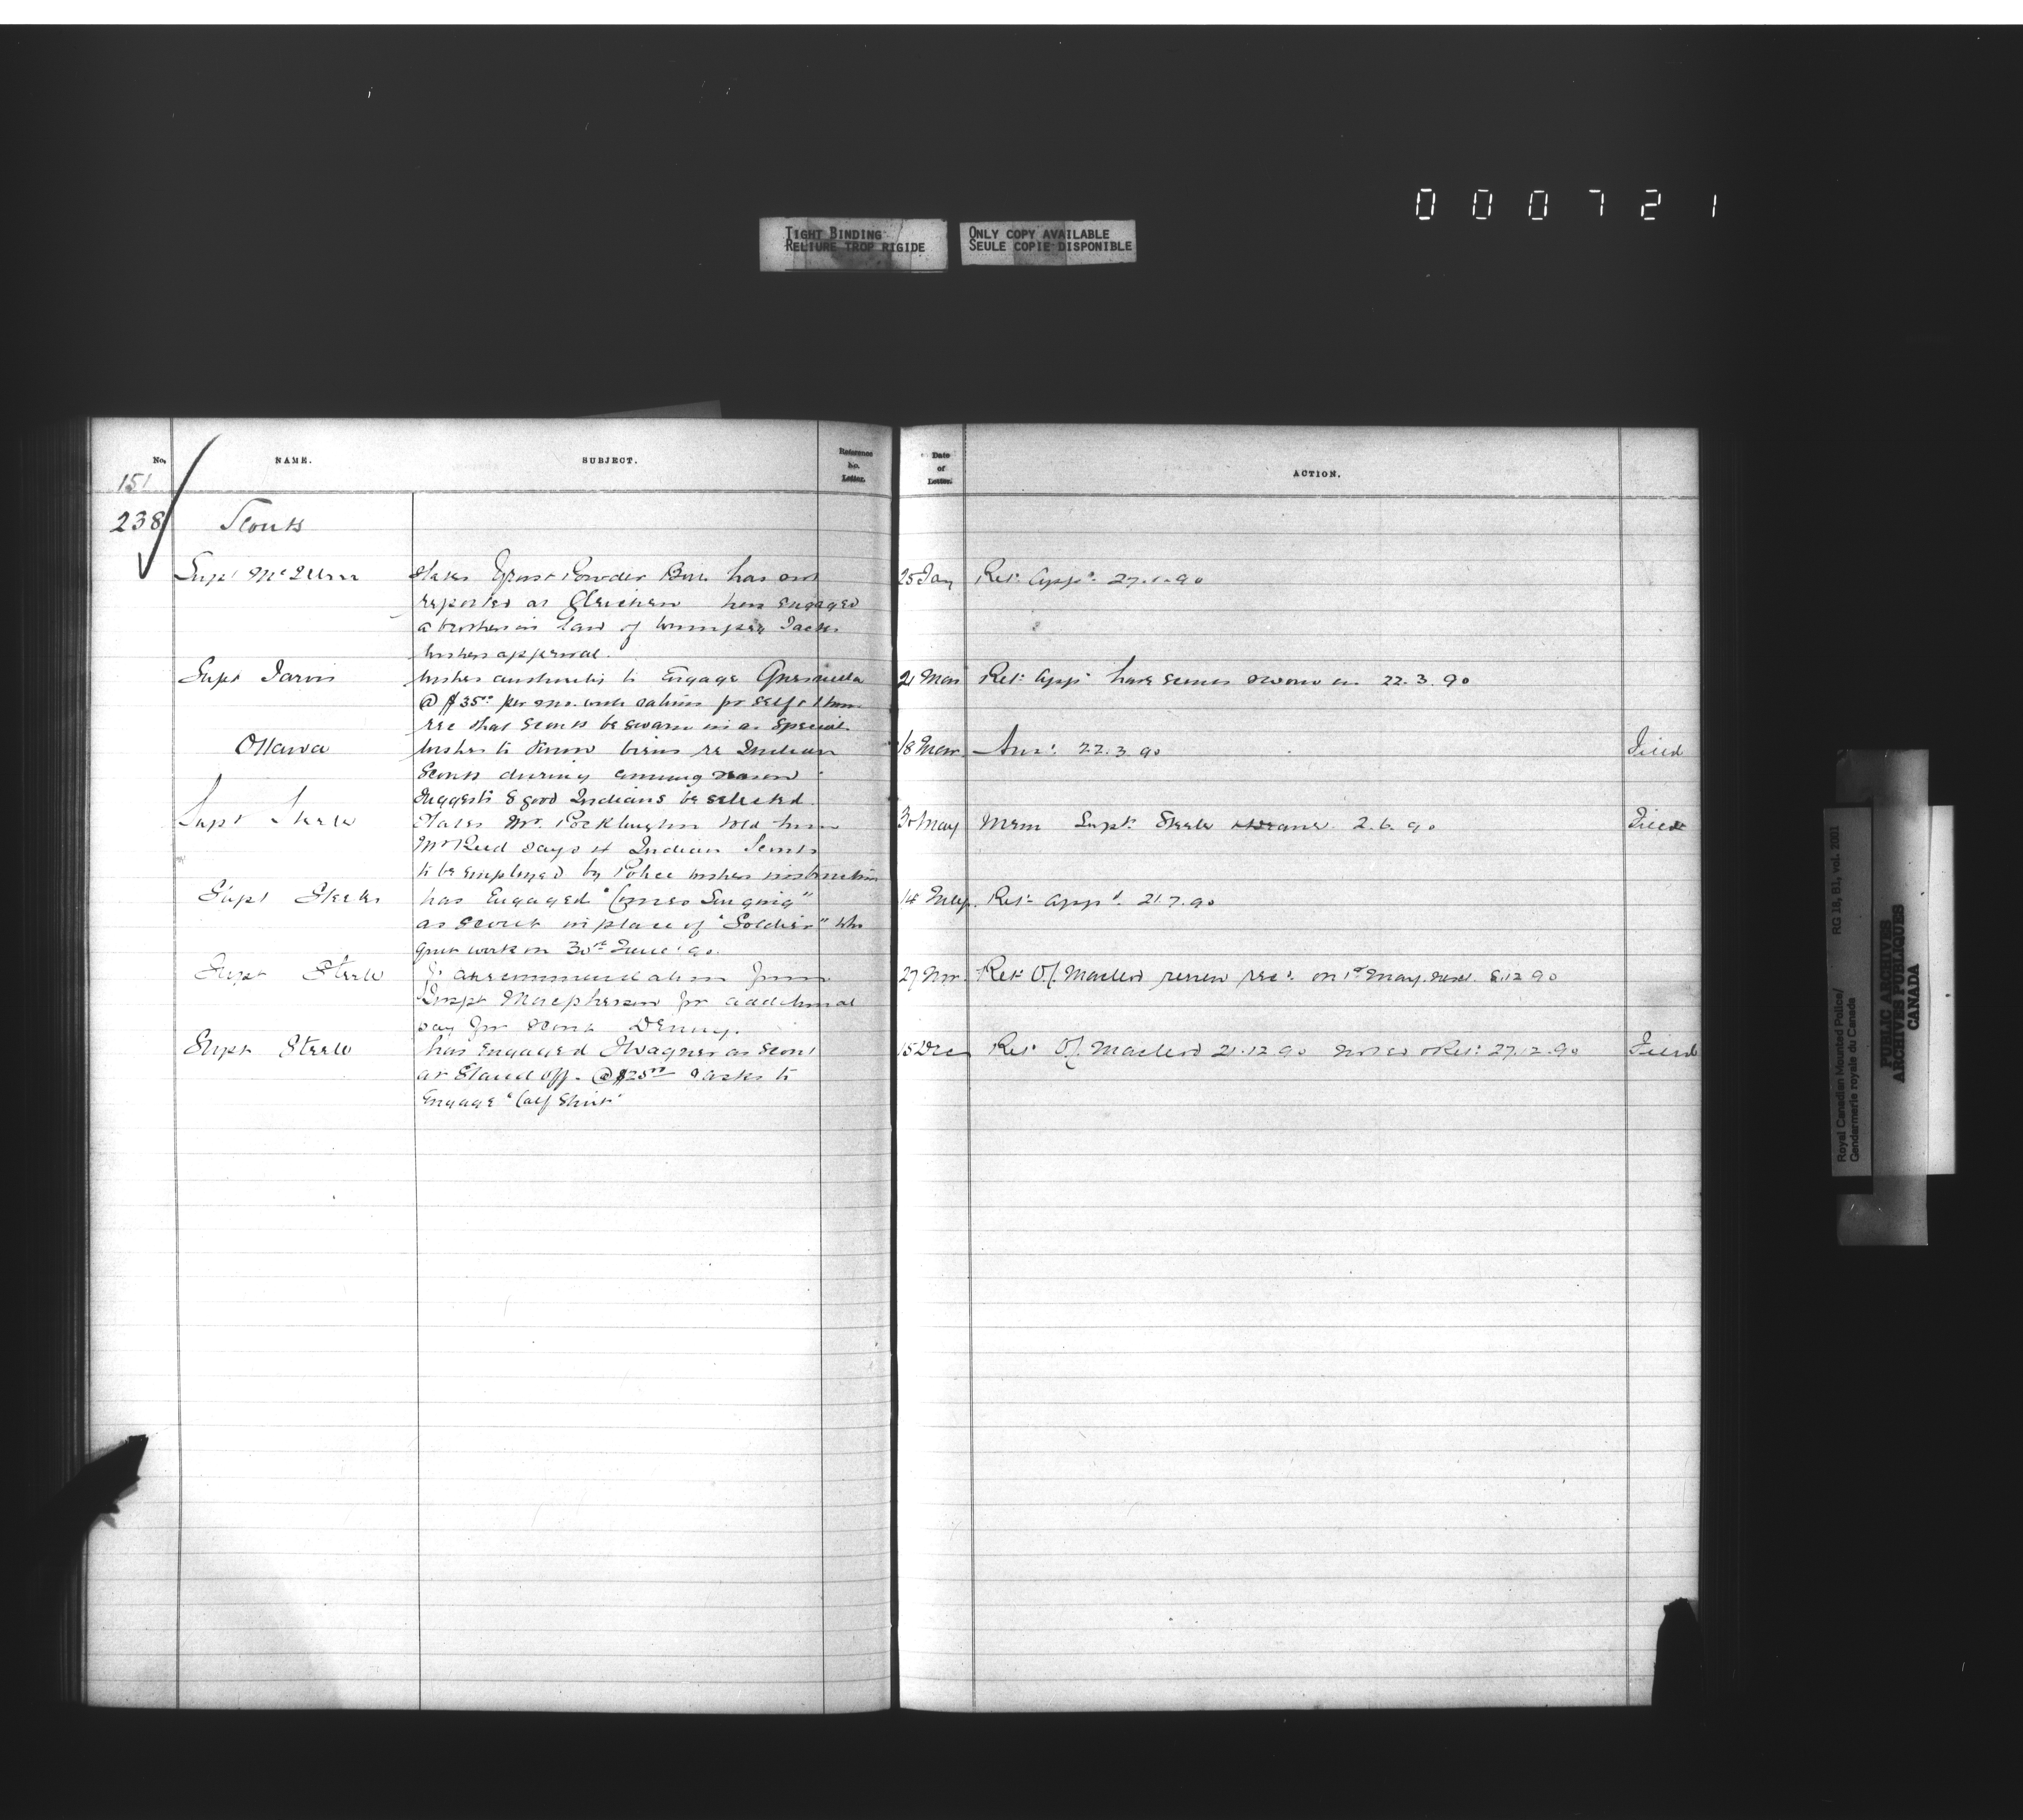 000721
TIGHT BINDING
RELIURE TROP RIGIDE
ONLY COPY AVAILABLE
SEULE COPIE DISPONIBLE
No. NAME. SUBJECT. Reference No. Letter. Date of Letter. ACTION.
151
238 Scouts
Supt McIllree States Powder has not 25 Jan Ret. app. 27.1.90
reported at Gleichen has engaged
a brother in law of Jack
wishes approval.
Supt Jarvis wishes authority to engage 21 Mar Ret. app. have scouts sworn in 22.3.90
@ $35 per mo. with rations for self &
rec that scouts be sworn in as Special
Ottawa wishes to know views re Indian 18 Mar Ans. 22.3.90 Filed
Scouts during coming season
suggests 8 good Indians be selected.
Supt Steele States Mr. Pocklington told him 30 May Mem Supt. Steele 2.6.90 Filed
Mr Reed says 4 Indian Scouts
to be employed by Police wishes instruction
Supt Steele has Engaged "Comes Singing" 14 July Ret. app. 21.7.90
as scout in place of "Soldier" who
quit work on 30th June '90.
Supt Steele recommendation from 27 Nov. Ret O/. Macleod renew rec. on 1st May next. 8.12.90
Inspt Macpherson for additional
pay for Scout Denny.
Supt Steele has engaged Wagner as Scout 15 Dec Ret O/. Macleod 21.12.90 noted & Ret. 27.12.90 Filed
at Stand off. @ $25 & asks to
engage "Calf Shirt"
Royal Canadian Mounted Police/ RG 18, B1, vol. 2001
Gendarmerie royale du Canada
PUBLIC ARCHIVES
ARCHIVES PUBLIQUES
CANADA